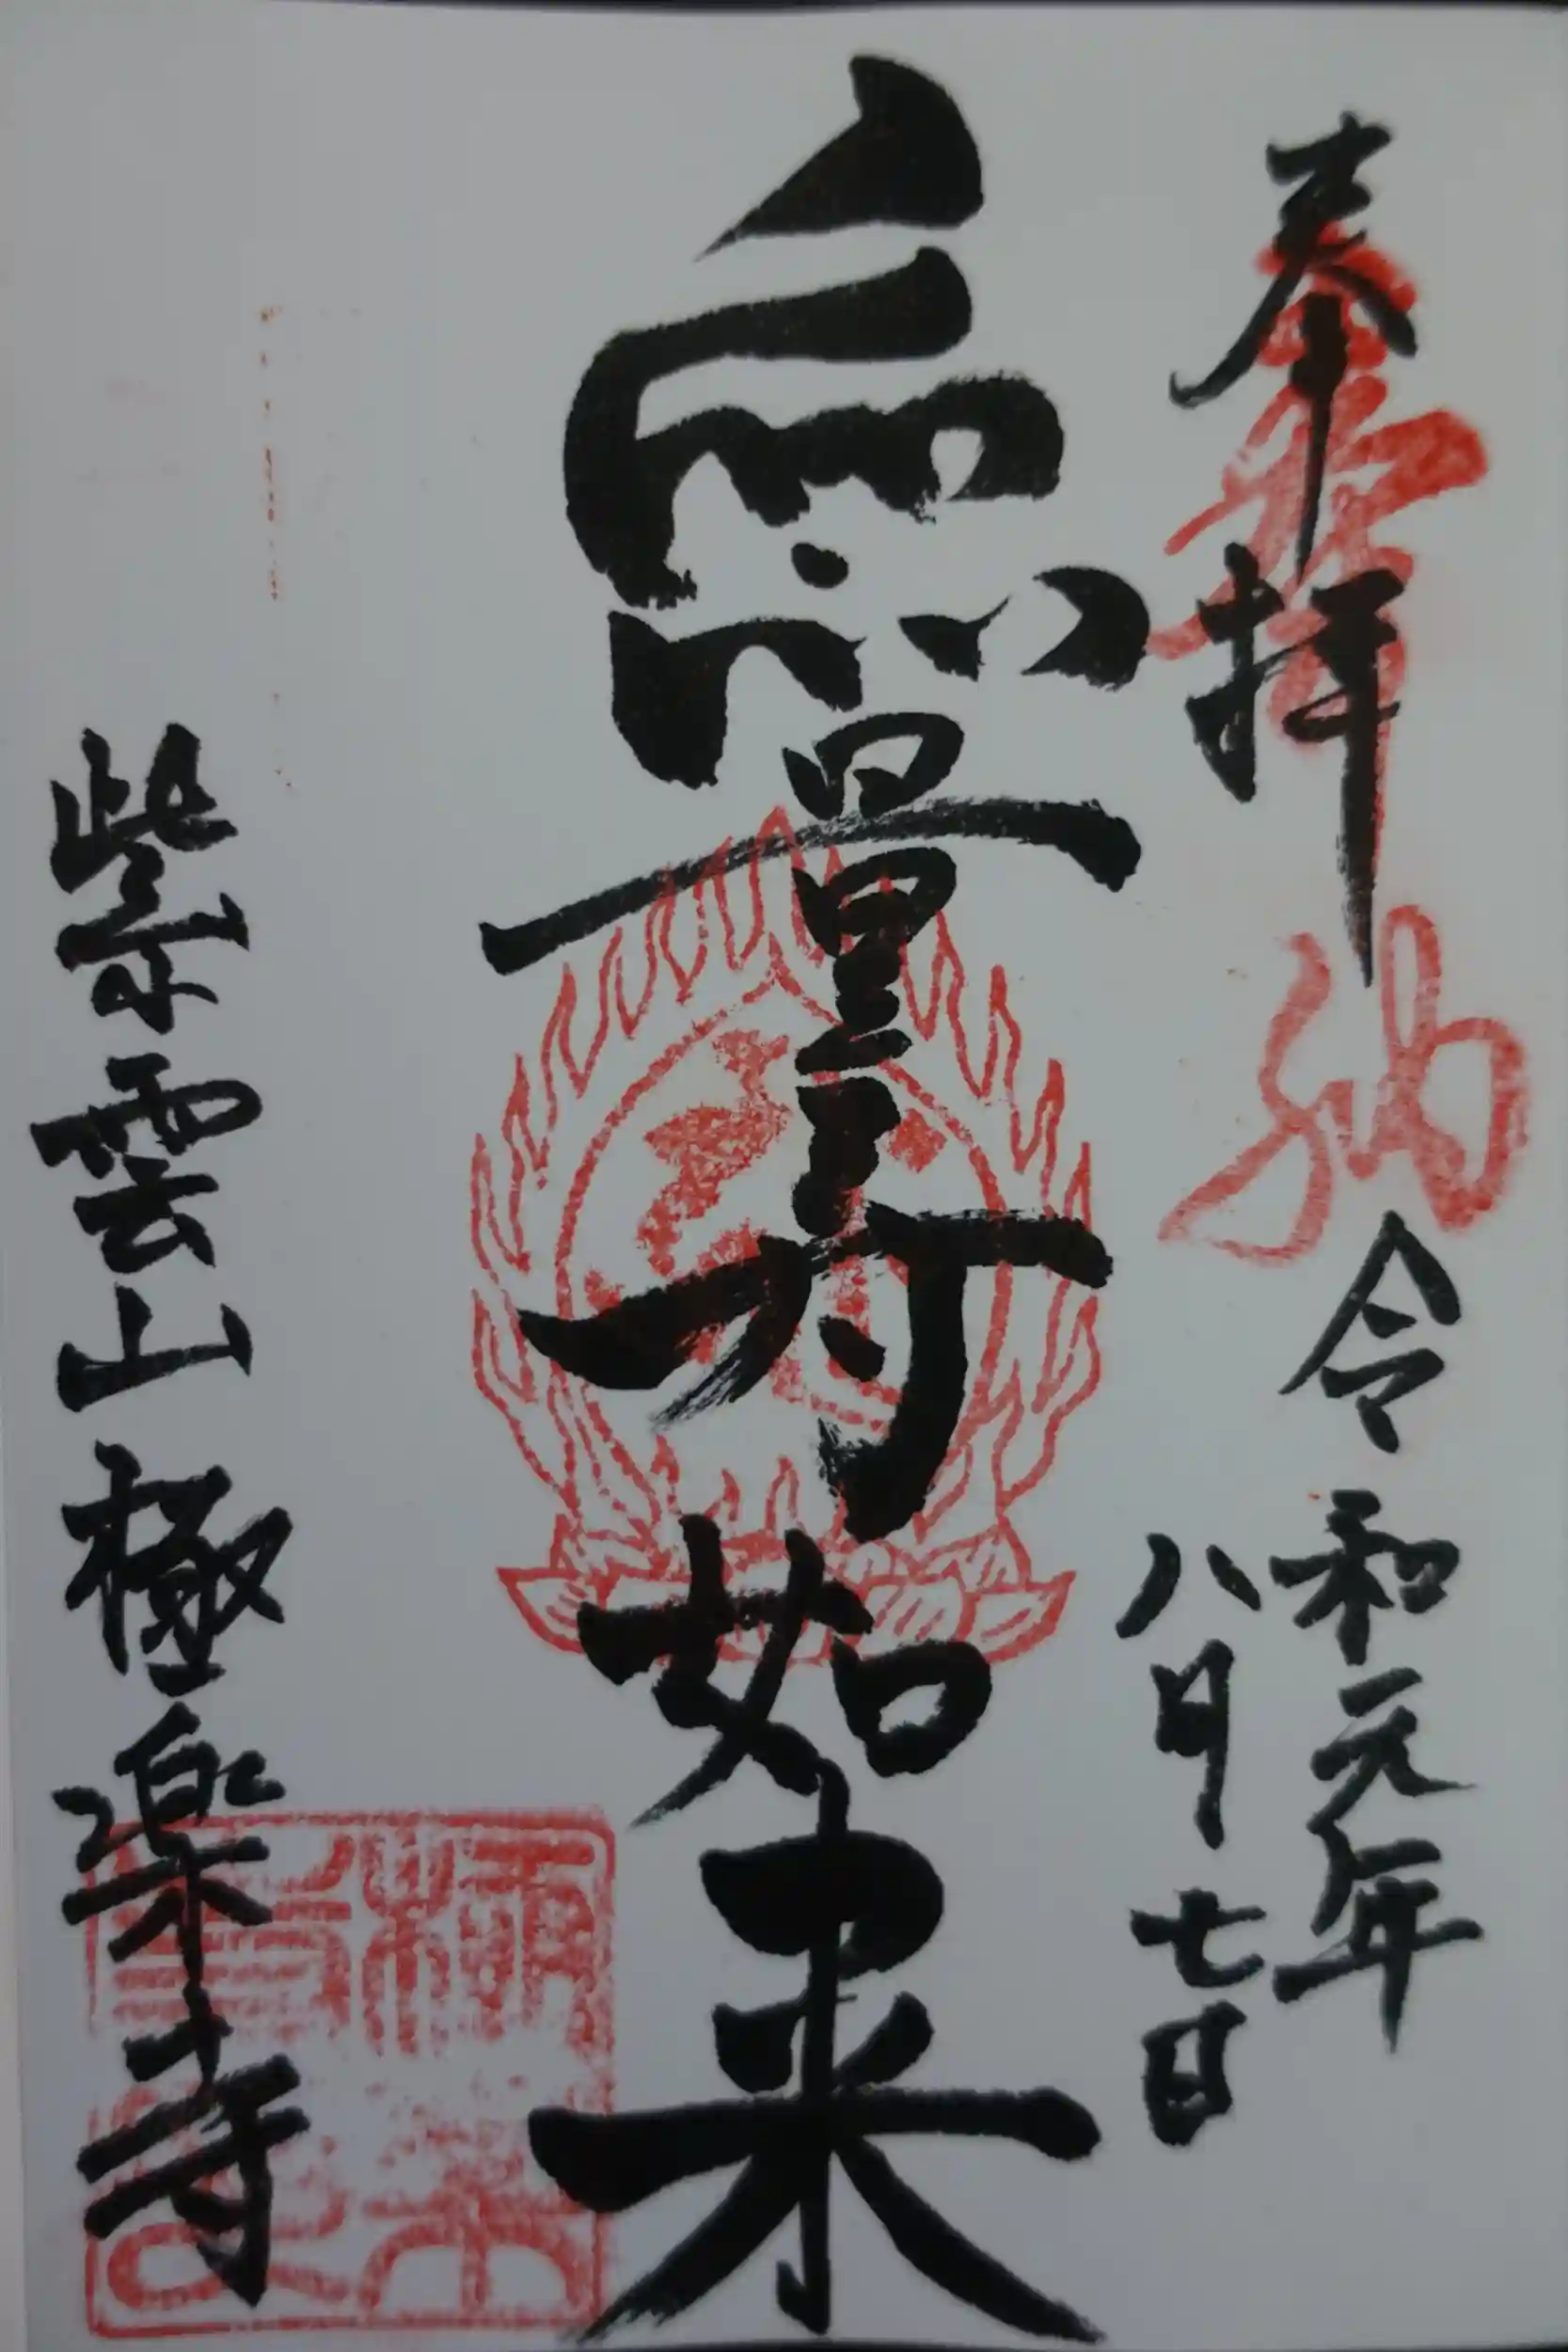 奉拝
令和元年
八月七日
無量寿如来
紫雲山極楽寺